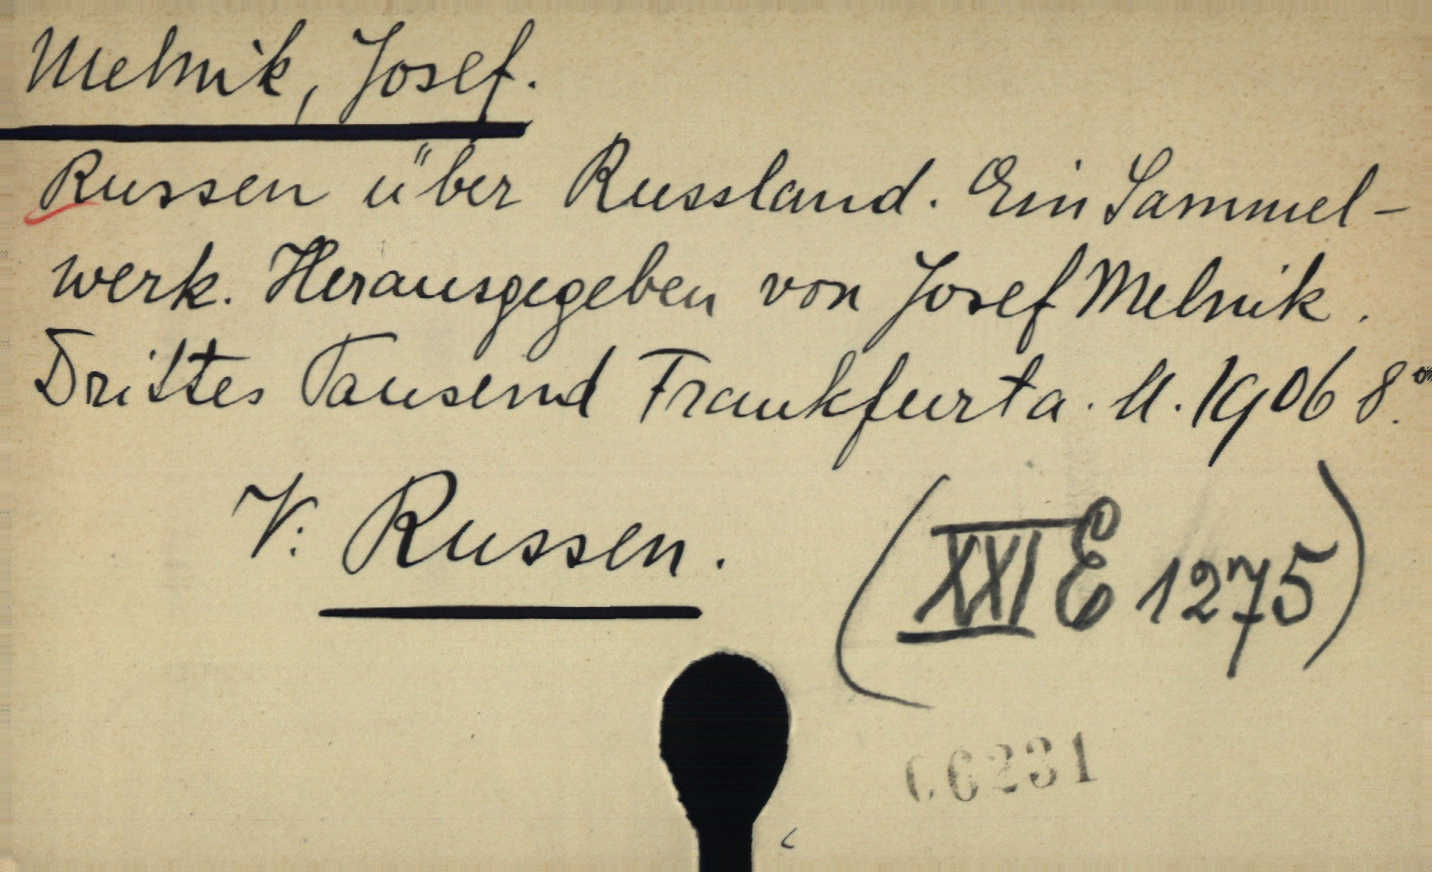 Melnik, Josef.
Russen über Russland. Ein Sammel-
werk. Herausgegeben von Josef Melnik.
Drittes Tausend Frankfurt a. M. 1906 8.º
V. Russen.
(XXI E 1275)
6231